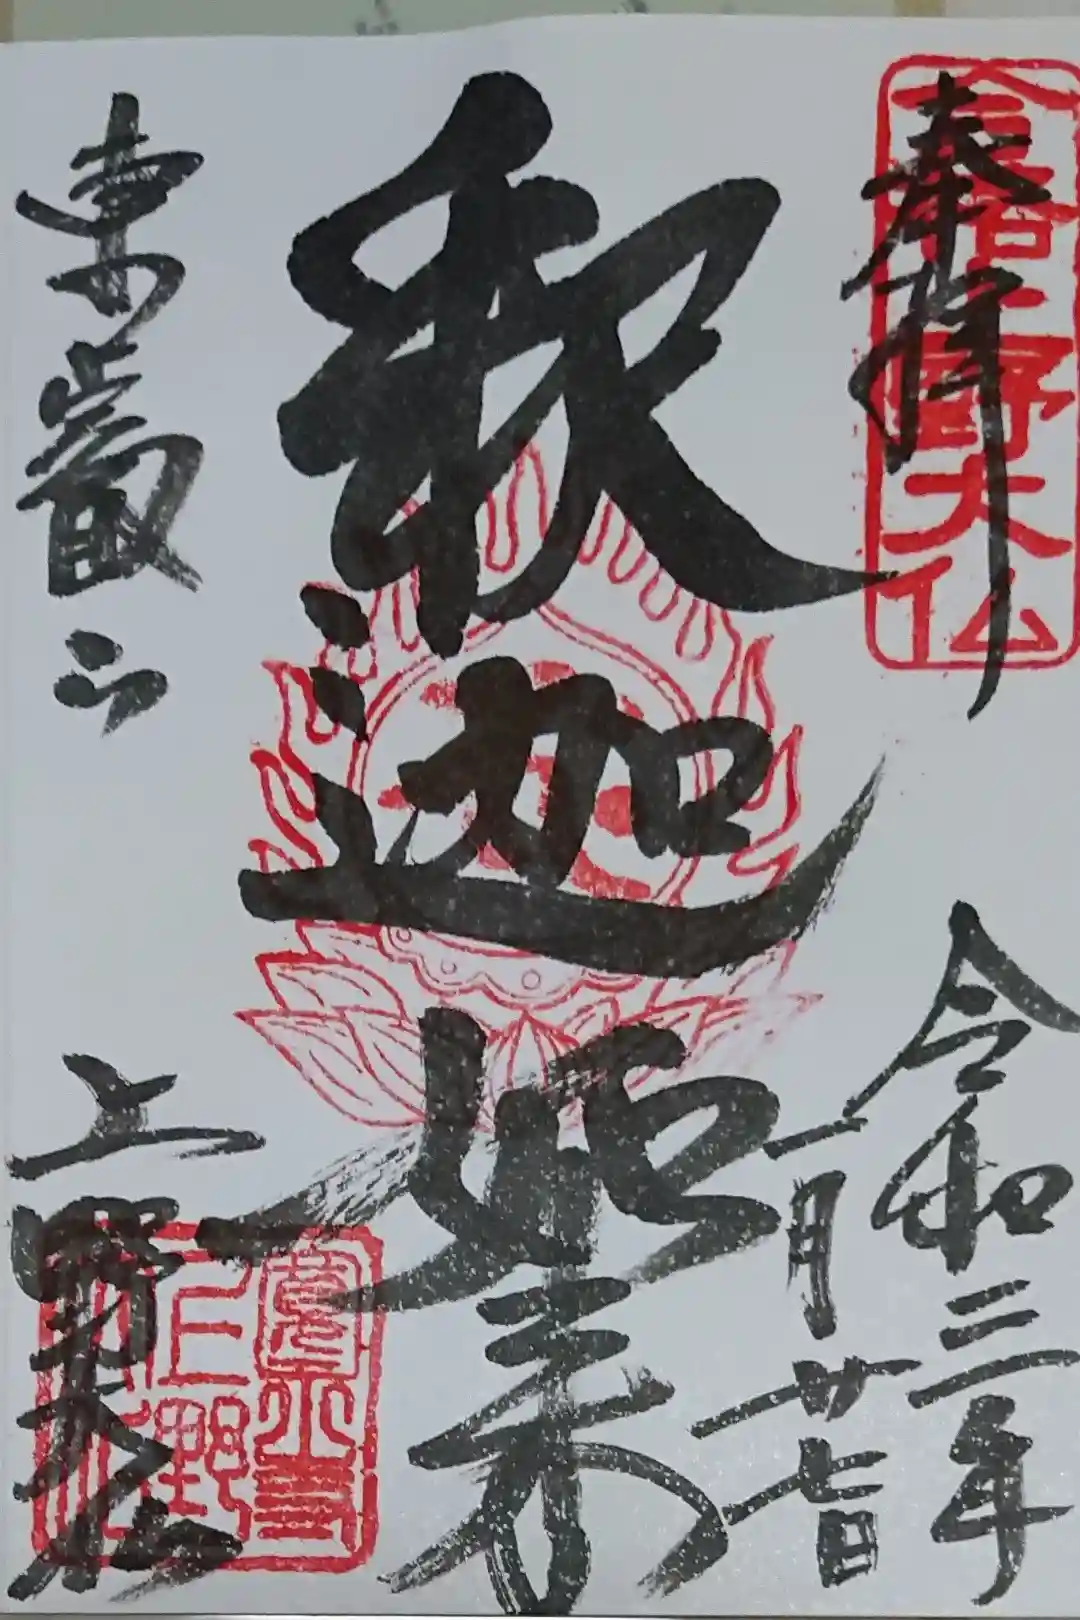 奉拝
合格上野大仏
令和三年
一月廿七日
釈迦如来
東叡山
上野大仏
上野